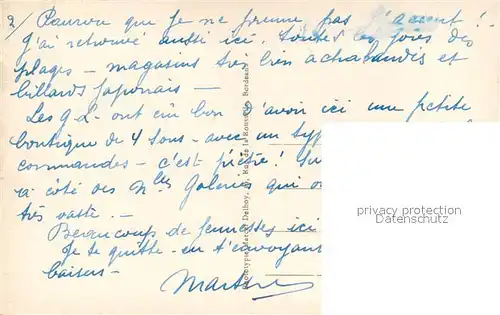 2/ Pourvu que je ne prenne pas l'accent !
J'ai retrouvé aussi ici. toutes les joies des
plages — magasins très bien achalandés et
billards japonais —
Les G.L. ont cru bon d'avoir ici une petite
boutique de 4 sous — avec un
commandes — c'est piètre !
à côté des Nlles Galeries qui
très vaste. —
Beaucoup de jeunesses ici
Je te quitte en t'envoyant
baisers —
Phototypie Marcel Delboy, Rue de la Bordeaux
privacy protection
Datenschutz